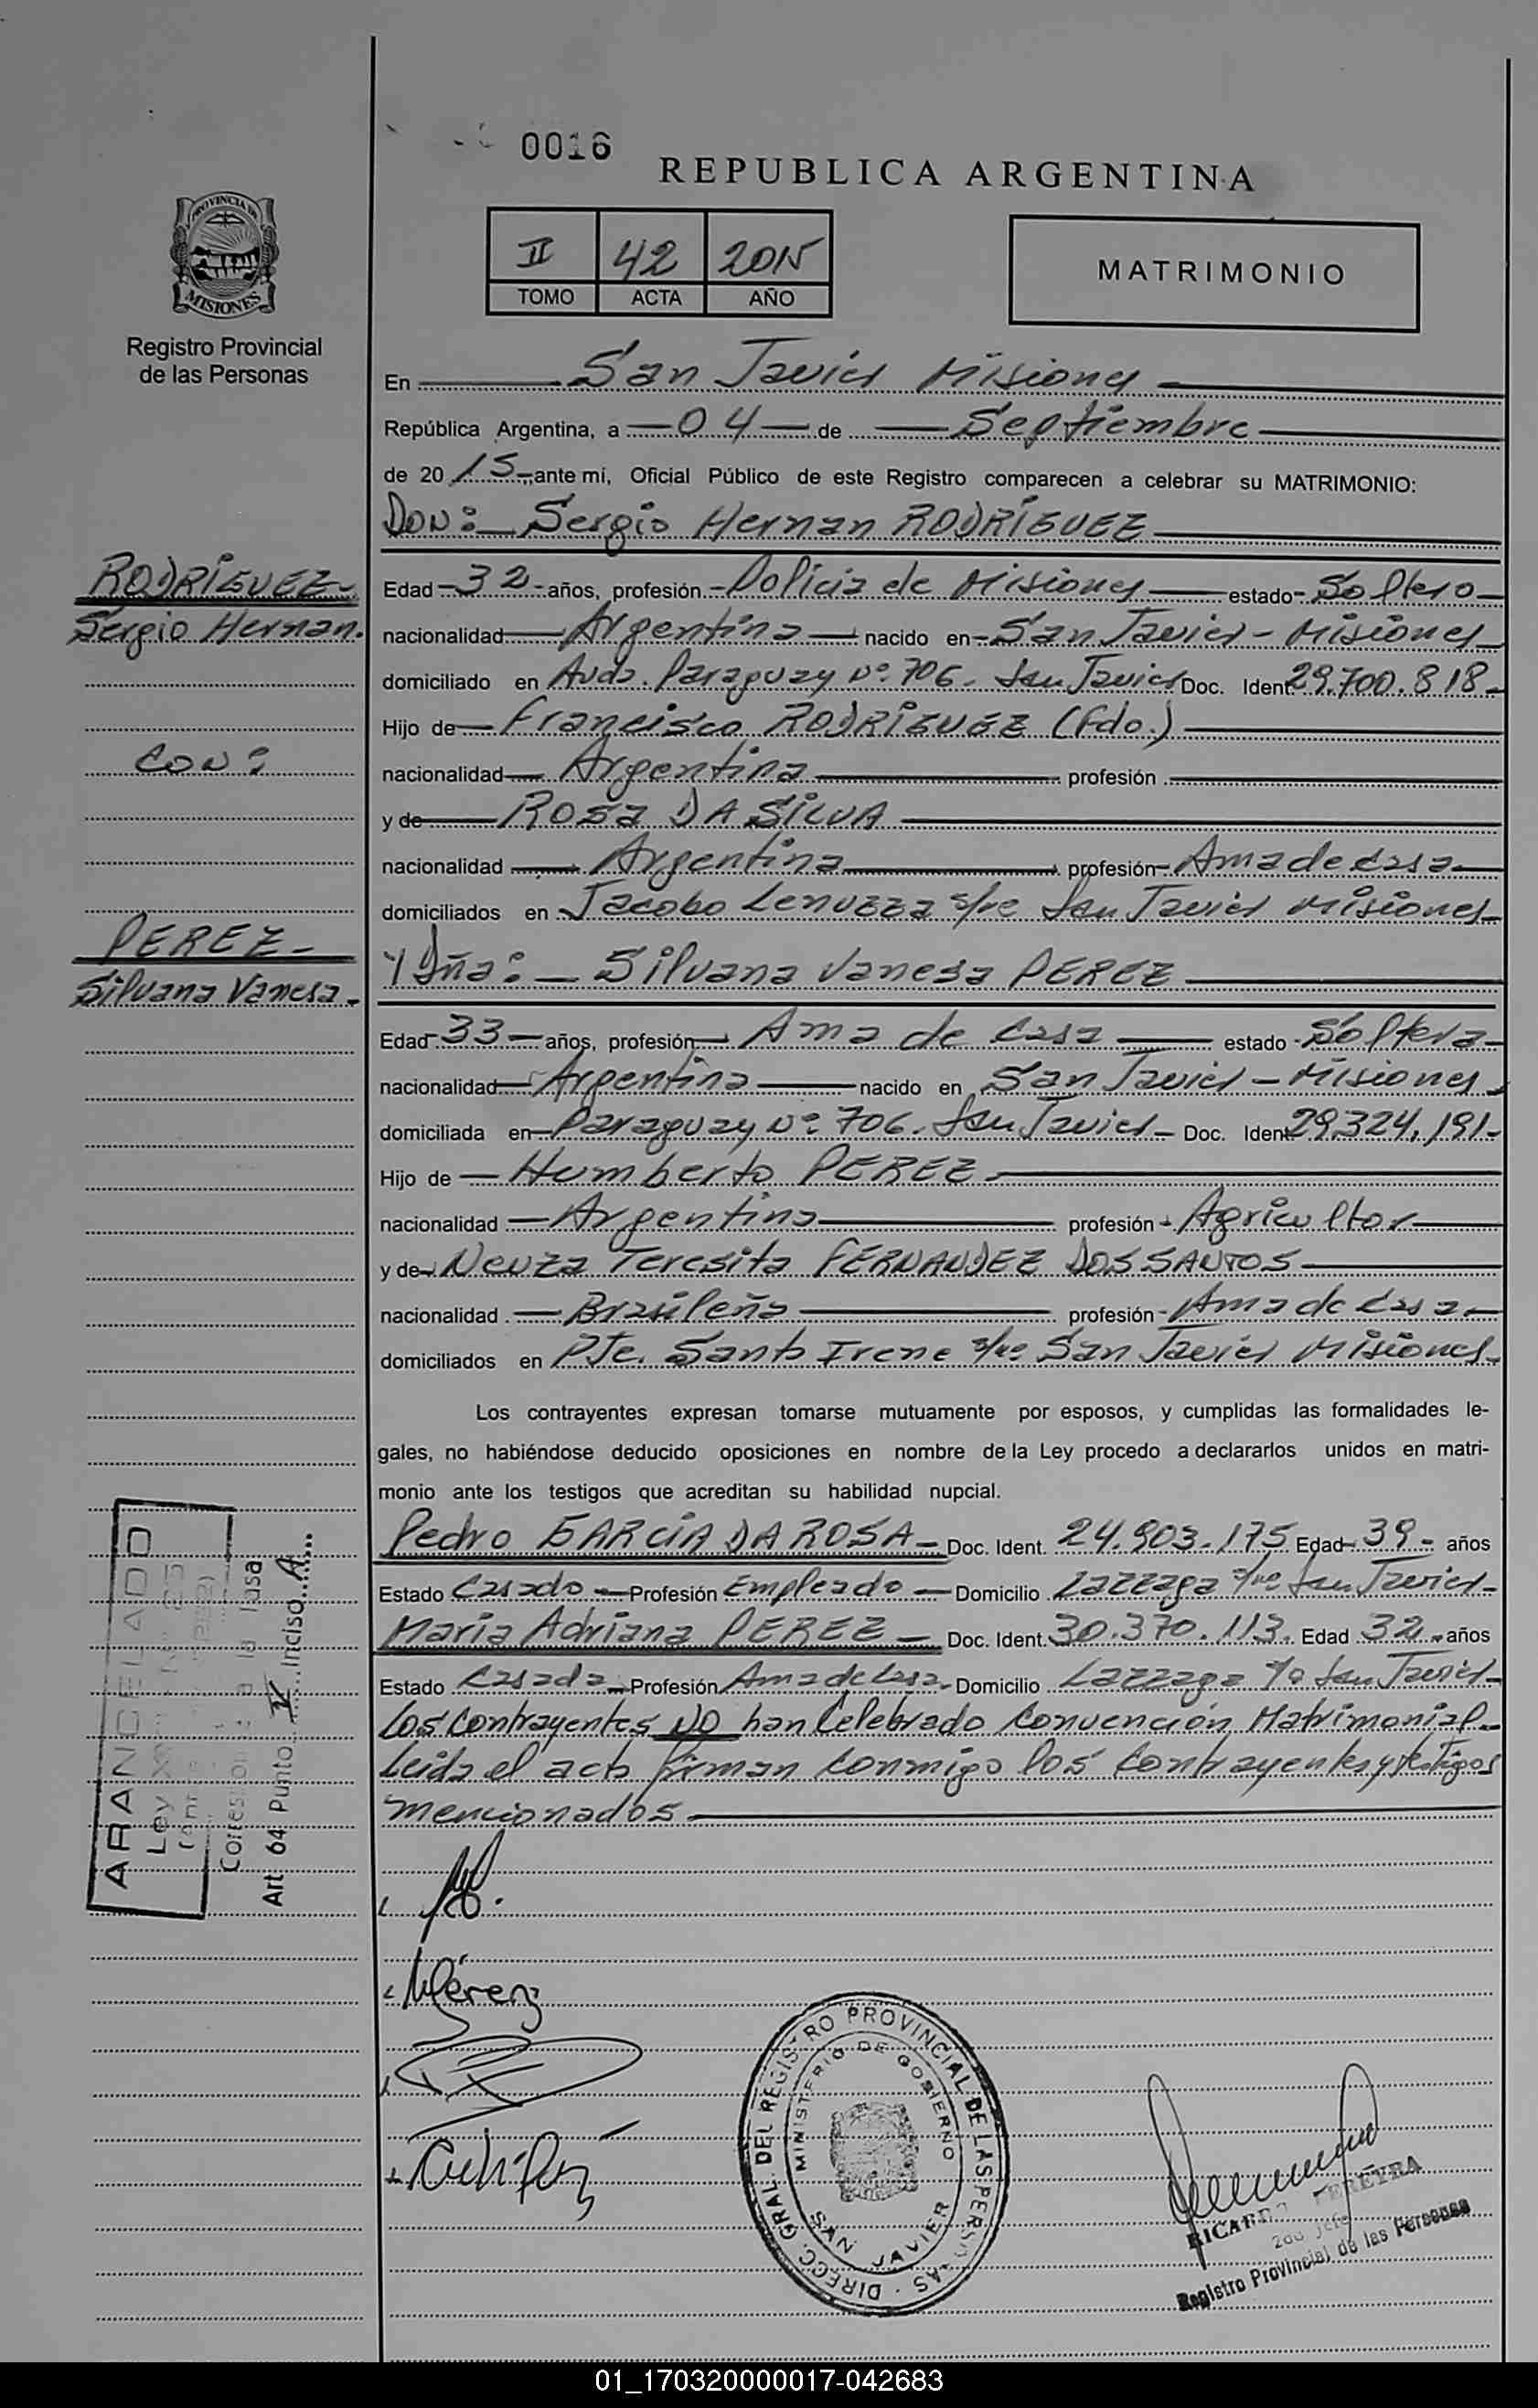 0016
REPUBLICA ARGENTINA
II 42 2015
TOMO ACTA AÑO
MATRIMONIO
PROVINCIA DE
MISIONES
Registro Provincial
de las Personas
En San Javier Misiones
República Argentina, a 04 de Septiembre
de 2015 ante mi, Oficial Público de este Registro comparecen a celebrar su MATRIMONIO:
Don: Sergio Hernan RODRÍGUEZ
RODRÍGUEZ
Sergio Hernan.
con:
PEREZ
Silvana Vanesa.
Edad 32 años, profesión Policia de Misiones estado Soltero
nacionalidad Argentina nacido en San Javier - Misiones
domiciliado en Avda. Paraguay Nº 706. San Javier Doc. Ident 29.700.818
Hijo de Francisco RODRÍGUEZ (Fdo.)
nacionalidad Argentina profesión
y de Rosa DA SILVA
nacionalidad Argentina profesión Ama de casa
domiciliados en Jacobo Lenuzza s/nº San Javier Misiones
Y Dña: Silvana Vanesa PEREZ
Edad 33 años, profesión Ama de Casa estado Soltera
nacionalidad Argentina nacido en San Javier - Misiones
domiciliada en Paraguay Nº 706. San Javier Doc. Ident 29.324.191
Hijo de Humberto PEREZ
nacionalidad Argentina profesión Agricultor
y de Neuza Teresita FERNANDEZ DOS SANTOS
nacionalidad Brasileña profesión Ama de Casa
domiciliados en Pje. Santa Irene s/nº San Javier Misiones
Los contrayentes expresan tomarse mutuamente por esposos, y cumplidas las formalidades le-
gales, no habiéndose deducido oposiciones en nombre de la Ley procedo a declararlos unidos en matri-
monio ante los testigos que acreditan su habilidad nupcial.
Pedro GARCÍA DA ROSA Doc. Ident. 24.903.175 Edad 39 años
Estado Casado Profesión Empleado Domicilio Lazzaga s/nº San Javier
Maria Adriana PEREZ Doc. Ident. 30.370.113. Edad 32 años
Estado Casada Profesión Ama de Casa Domicilio Lazzaga s/n San Javier
Los Contrayentes NO han Celebrado Convención Matrimonial
Leida el acta firman conmigo los Contrayentes y testigos
mencionados
ARANCELADO
Ley
Corresponde a la Tasa
Art. 64 Punto IV Inciso A
DIRECC. GRAL. DEL REGISTRO PROVINCIAL DE LAS PERSONAS
MINISTERIO DE GOBIERNO
SAN JAVIER
RICARDO PEREYRA
2do Jefe
Registro Provincial de las Personas
01_170320000017-042683